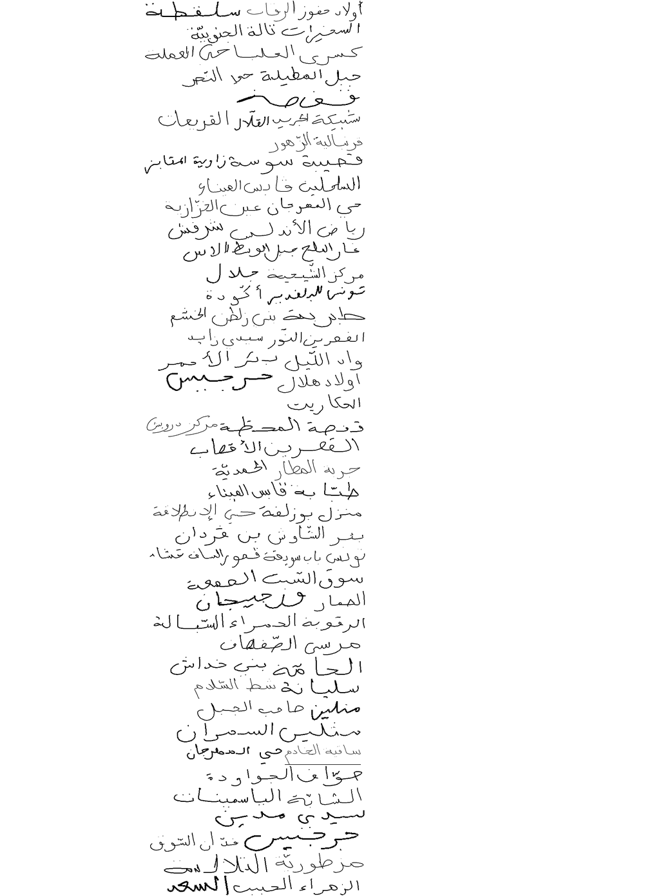 أولاد حفوز الرحاب سلقطة
السعيرات تالة الجنوبيّة
كسرى العليا حي العملة
جبل المطيلة
قفصة
شبيكة الجريد القلال القريعان
فرينانة الزهور
قصيبة سوسة زاوية المقايز
الساحلين قابس الميناء
حي المهرجان عين الغزازية
رياض الأندلس شرفش
غار الملح جبل الوسط الالاس
مركز الشيحية جلال
تونس البلفدير أكودة
طبرية بني زلطن الخشم
القصرين النور سيدي زايد
واد اللّيل بئر الأحمر
أولاد هلال جرجيس
الحكاريت
قفصة المحطة مركز درويش
القصرين الأقصاب
حربة العطار الحمديّة
طبّابة قابس الميناء
منزل بوزلفة حي الإنطلاقة
بئر الشاوش بن قردان
تونس باب سويقة قصور الساف غشاد
سوق السّبت الصمعة
الصمار ورجيجان
الرقوبة الحمراء السّبالة
مرسى الصّفصاف
الحامّة بني خداش
سليانة شط السّلام
منلين حاجب الجبل
متلين السمران
ساقية الخادم حي المهرجان
حوّاف الجواودة
الشابّة الياسمينات
سيدي مدين
جرجيس فدّان السّوق
مرطوريّة التلالسة
الزهراء الحبيب السعد